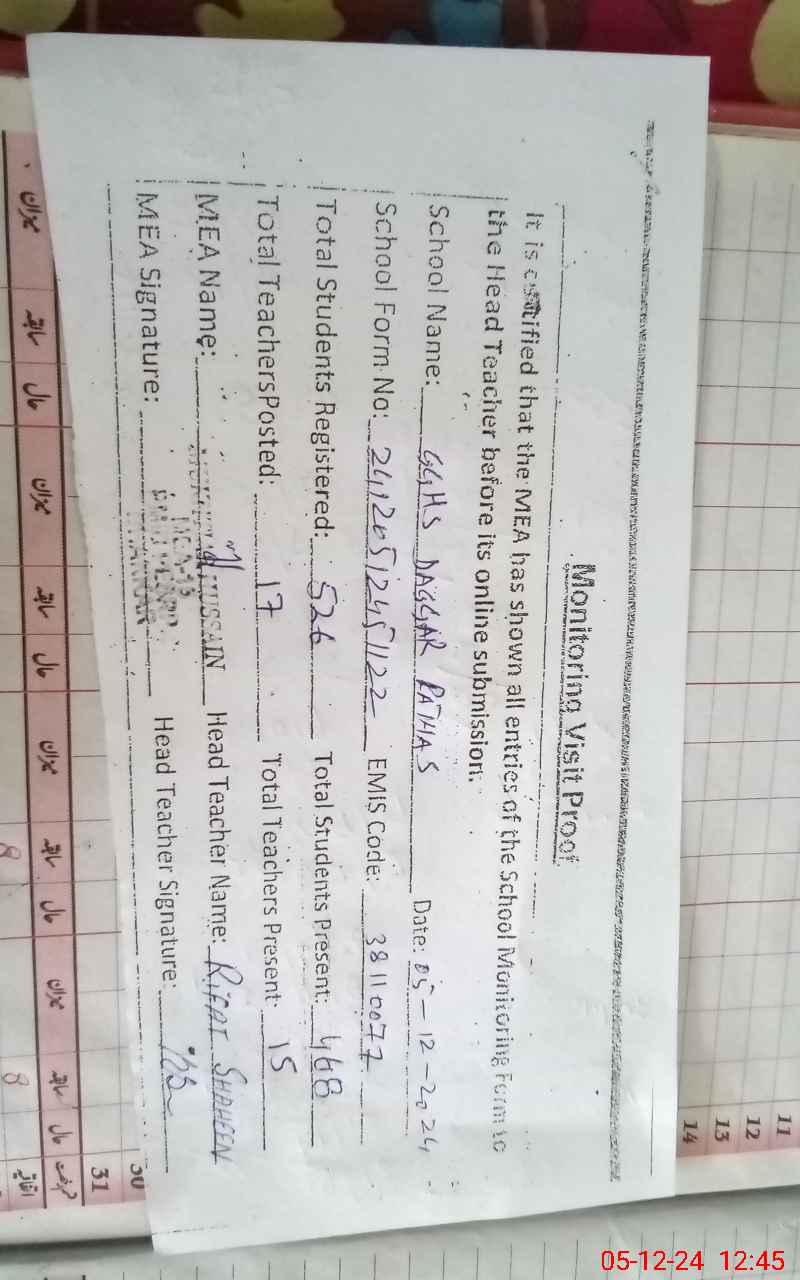 Monitoring Visit Proof
It is certified that the MEA has shown all entries of the School Monitoring Form to
the Head Teacher before its online submission.
School Name: GGHS DAGGAR Date: 05-12-2024
School Form No: EMIS Code: 38110077
Total Students Registered: 526 Total Students Present: 468
Total Teachers Posted: 17 Total Teachers Present: 15
MEA Name: HUSSAIN Head Teacher Name: RIFAT SHAHEEN
MEA Signature: Head Teacher Signature:
11
12
13
14
30
31
میزان سابقہ حال میزان سابقہ حال میزان سابقہ حال میزان سابقہ حال
8
8
05-12-24 12:45